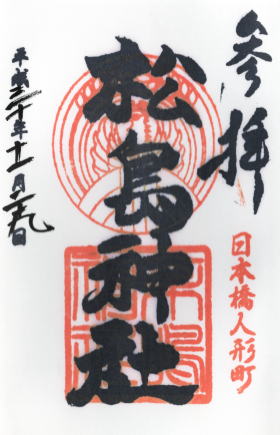 参拝
日本橋人形町
松島神社
平成三十年十一月二九日